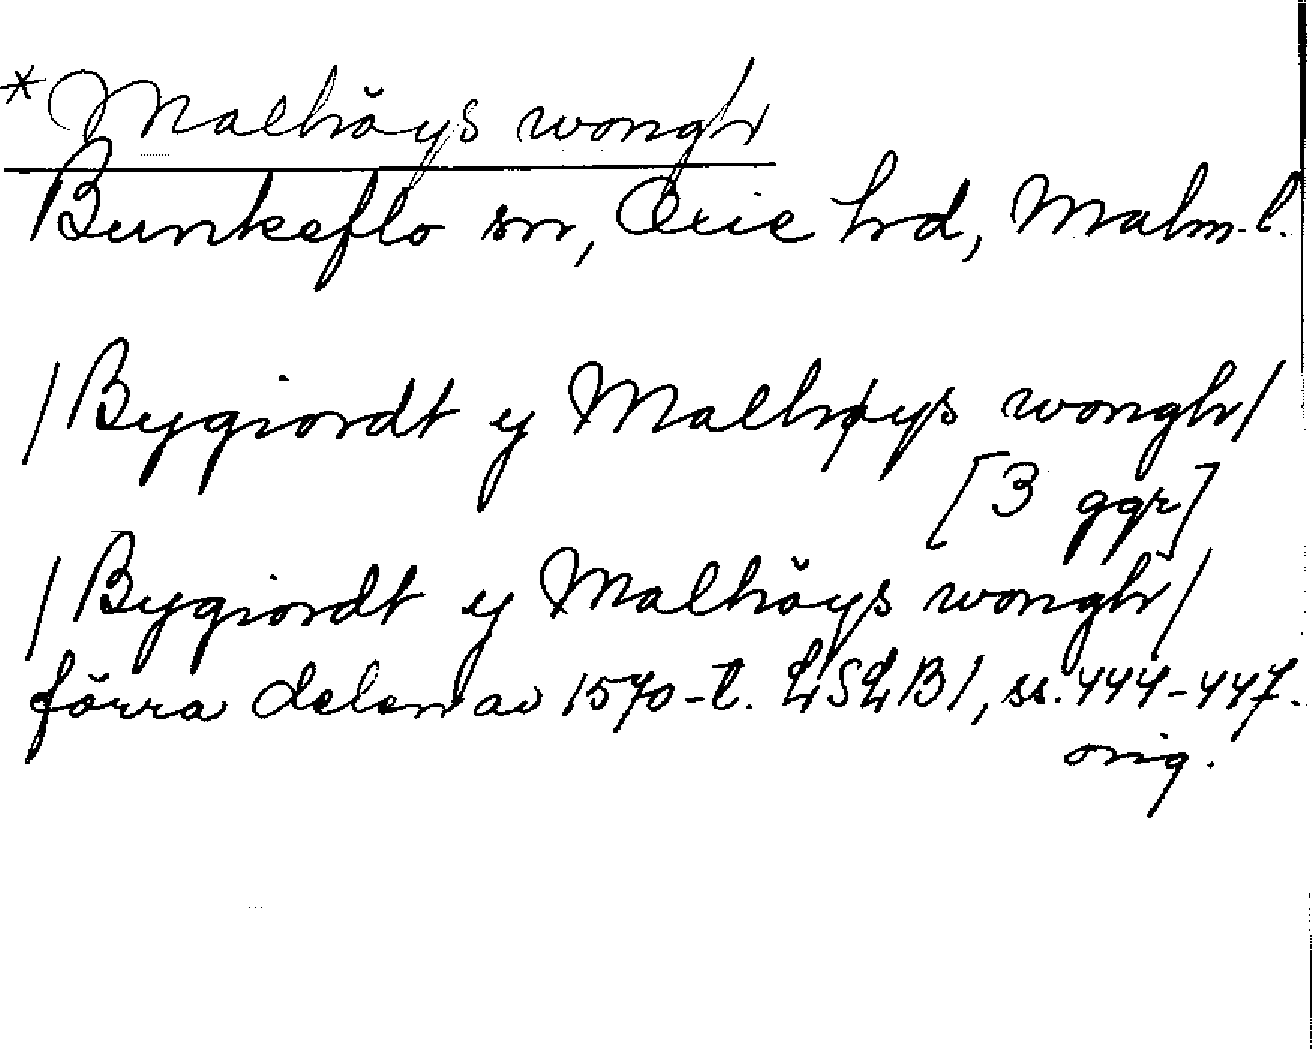 * Malhöys wongh
Bunkeflo sn, Oxie hrd, Malm. l.
/Bygiordt y Malhøys wongh/
[3 ggr]
/Bygiordt y Malhöys wongh/
förra delen av 1570-t. LSLB1, ss. 444-447.
orig.